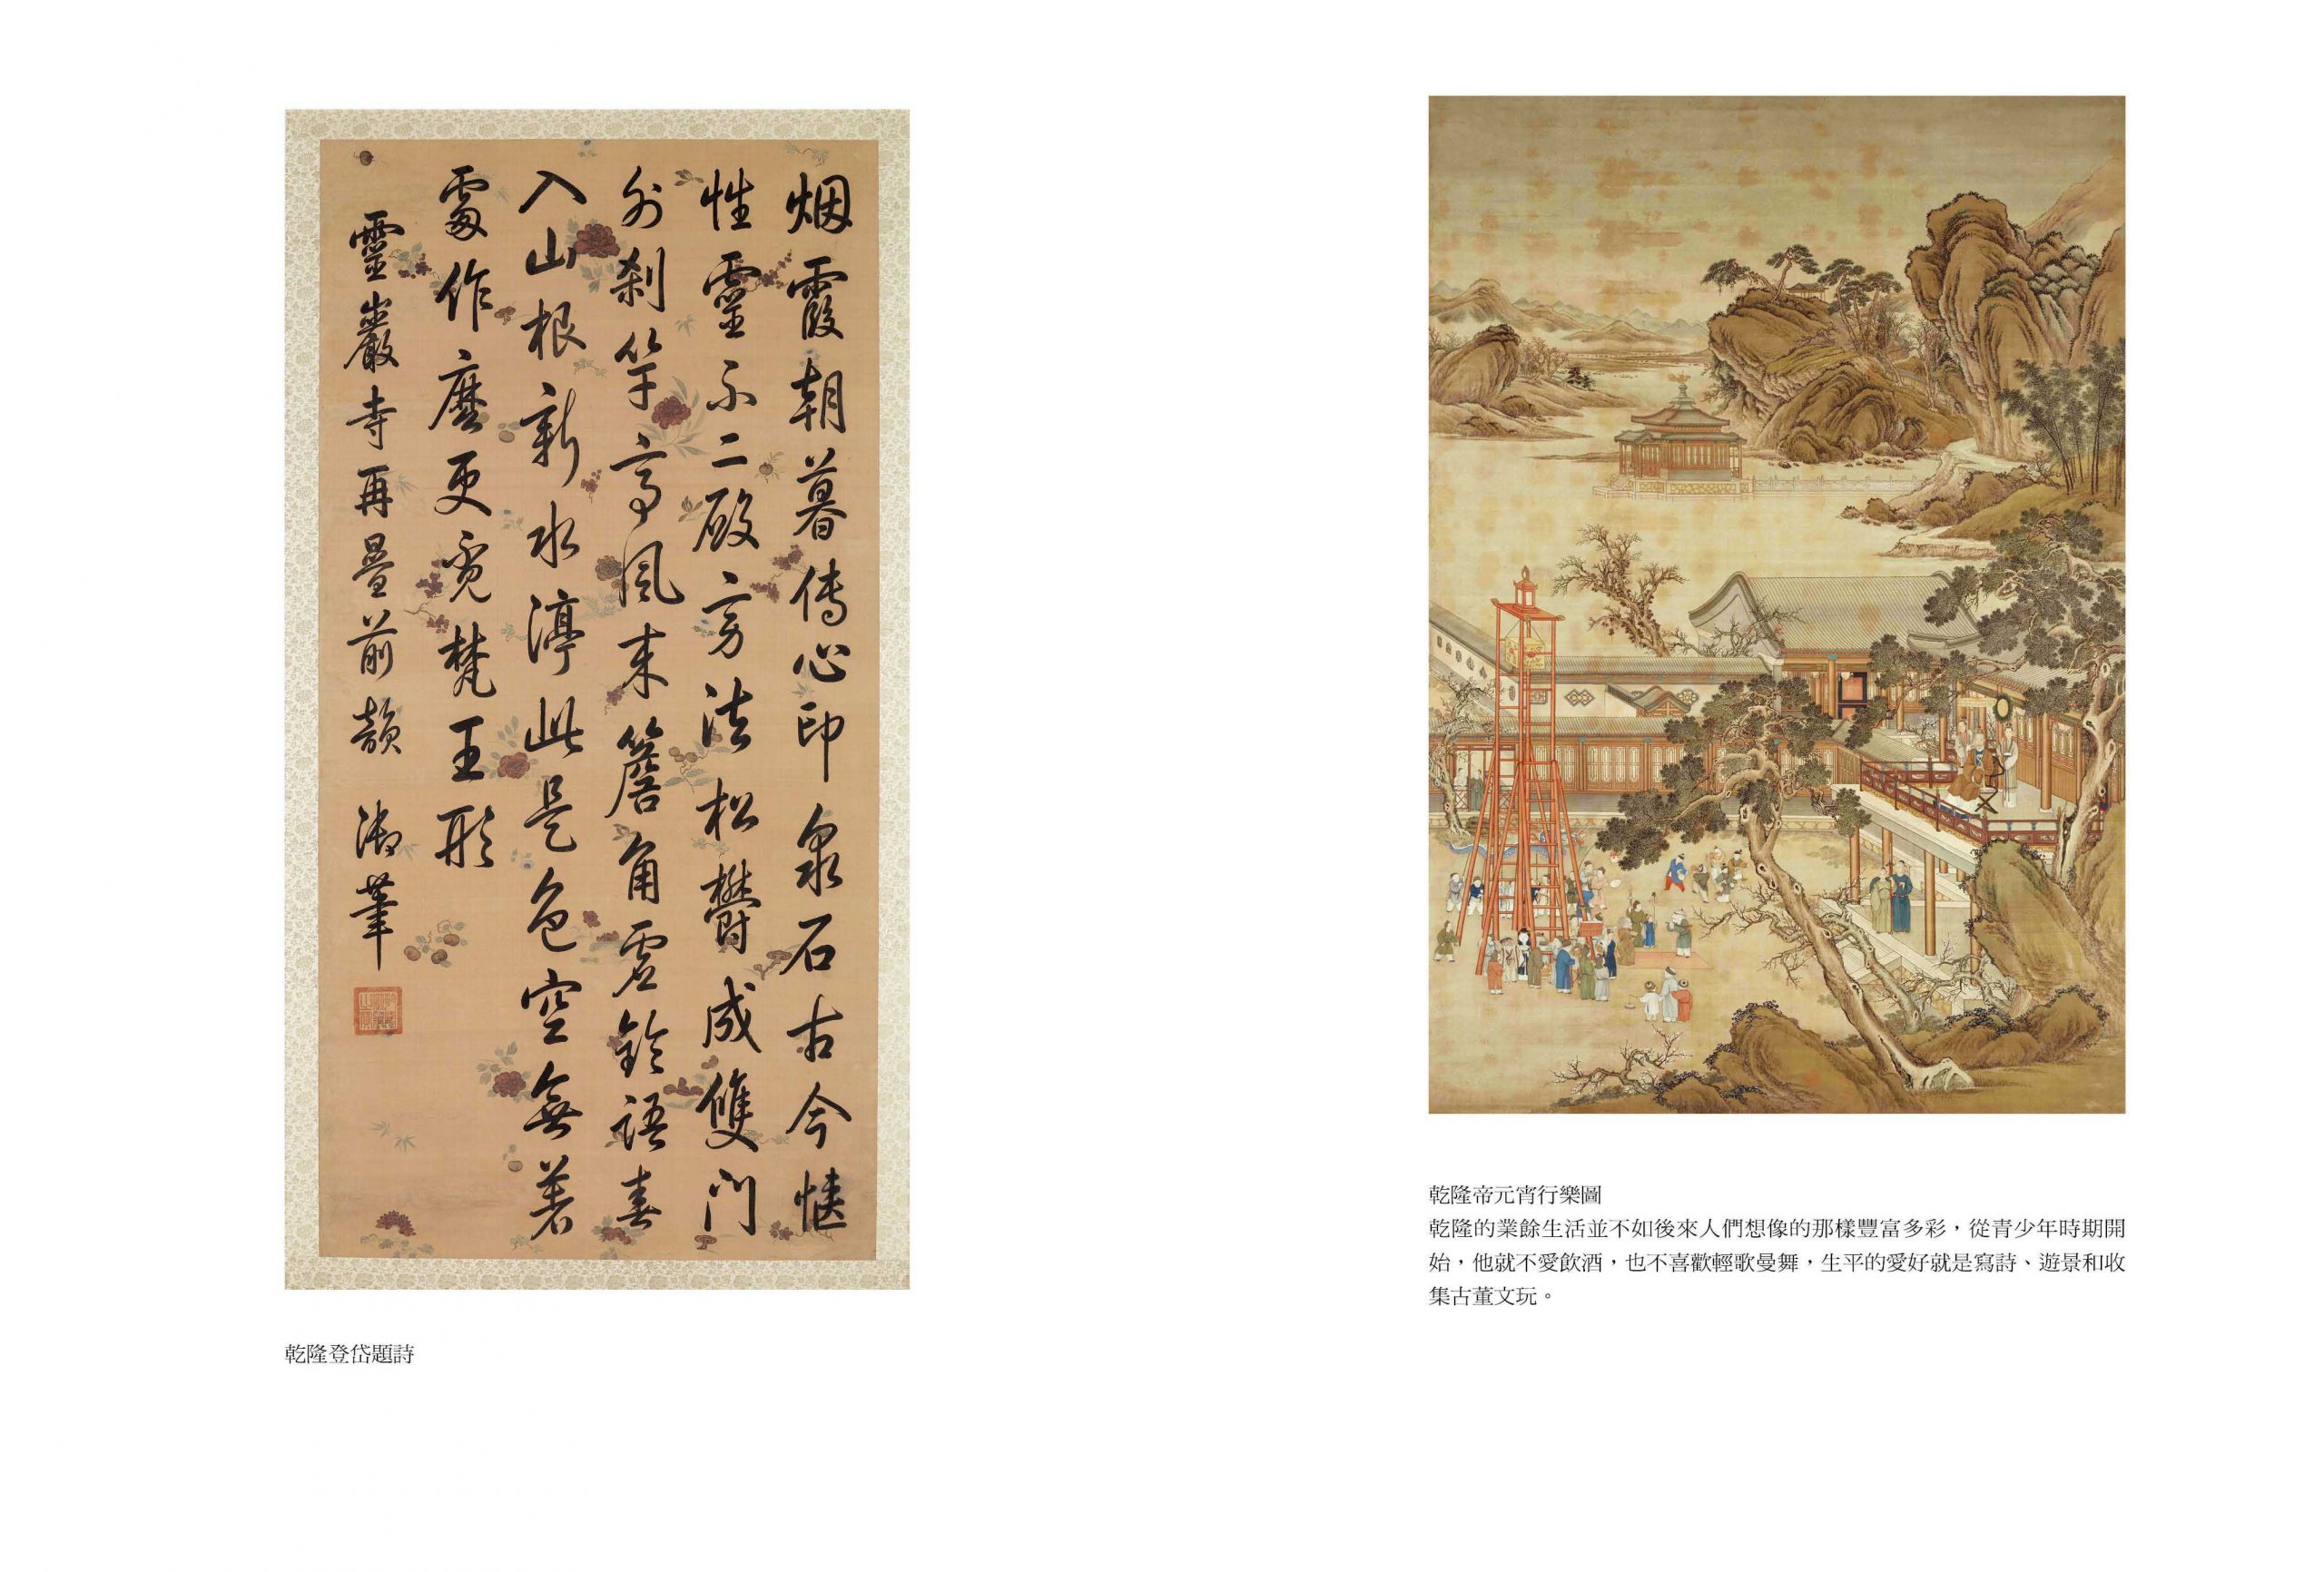 烟霞朝暮傳心印泉石古今愜
性靈不二殿旁法松欝成雙門
外刹竿高風來簷角虛鈴語春
入山根新水渟此是色空無著
處作麽更覓梵王形
靈巖寺再疊前韻 御筆
乾隆登岱題詩
乾隆帝元宵行樂圖
乾隆的業餘生活並不如後來人們想像的那樣豐富多彩，從青少年時期開
始，他就不愛飲酒，也不喜歡輕歌曼舞，生平的愛好就是寫詩、遊景和收
集古董文玩。